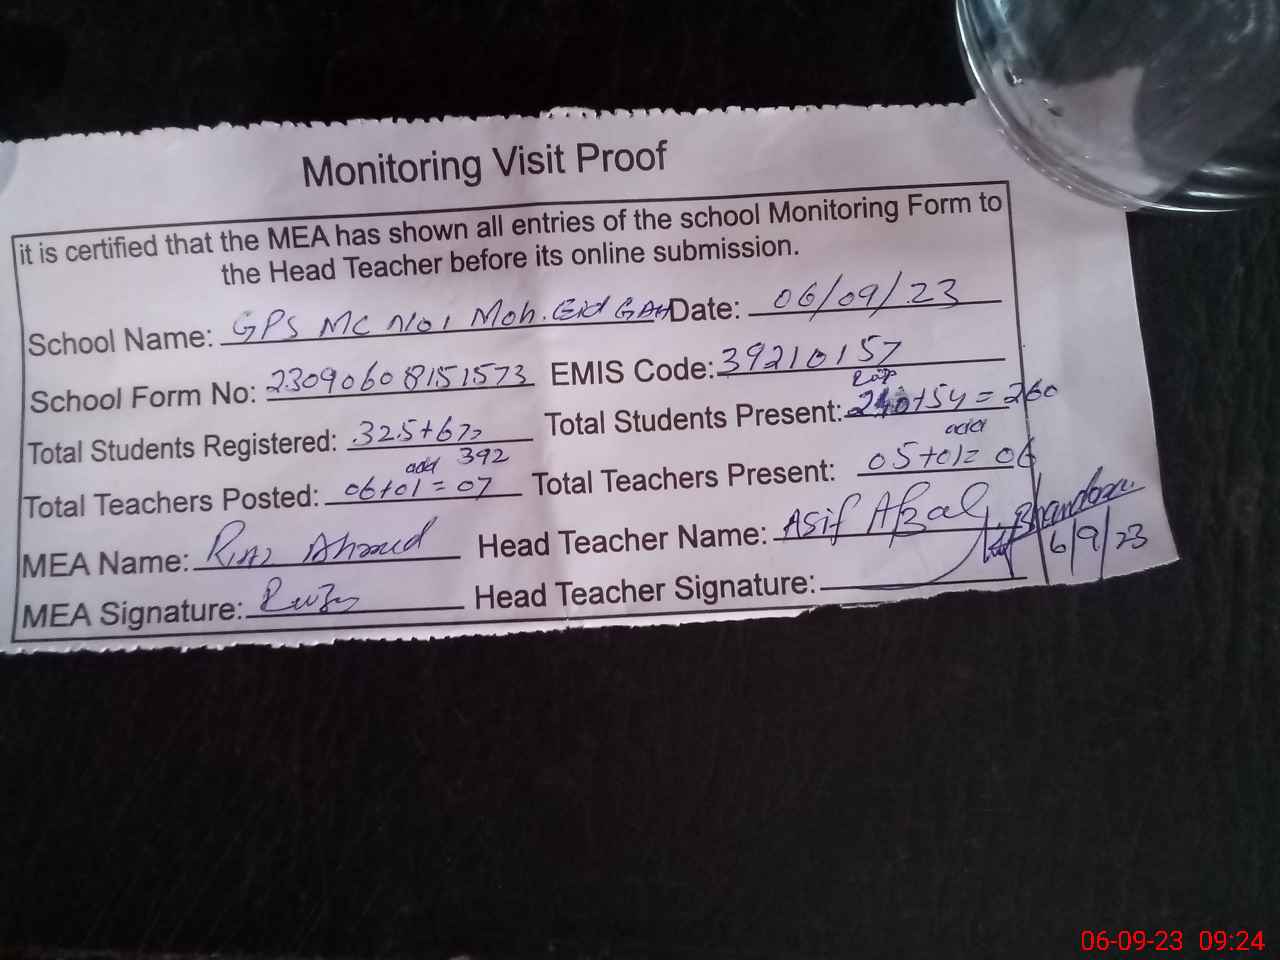 Monitoring Visit Proof
it is certified that the MEA has shown all entries of the school Monitoring Form to
the Head Teacher before its online submission.
School Name: GPS MC No 1 Moh. Eid GAH Date: 06/09/23
School Form No: 23090608151573 EMIS Code: 39210157
Total Students Registered: 325+67= 392 Total Students Present: +54=260
Total Teachers Posted: 06+01=07 Total Teachers Present: 05+01=06
MEA Name: Riaz Ahmad Head Teacher Name: Asif Afzal
MEA Signature: Head Teacher Signature:
6/9/23
06-09-23 09:24